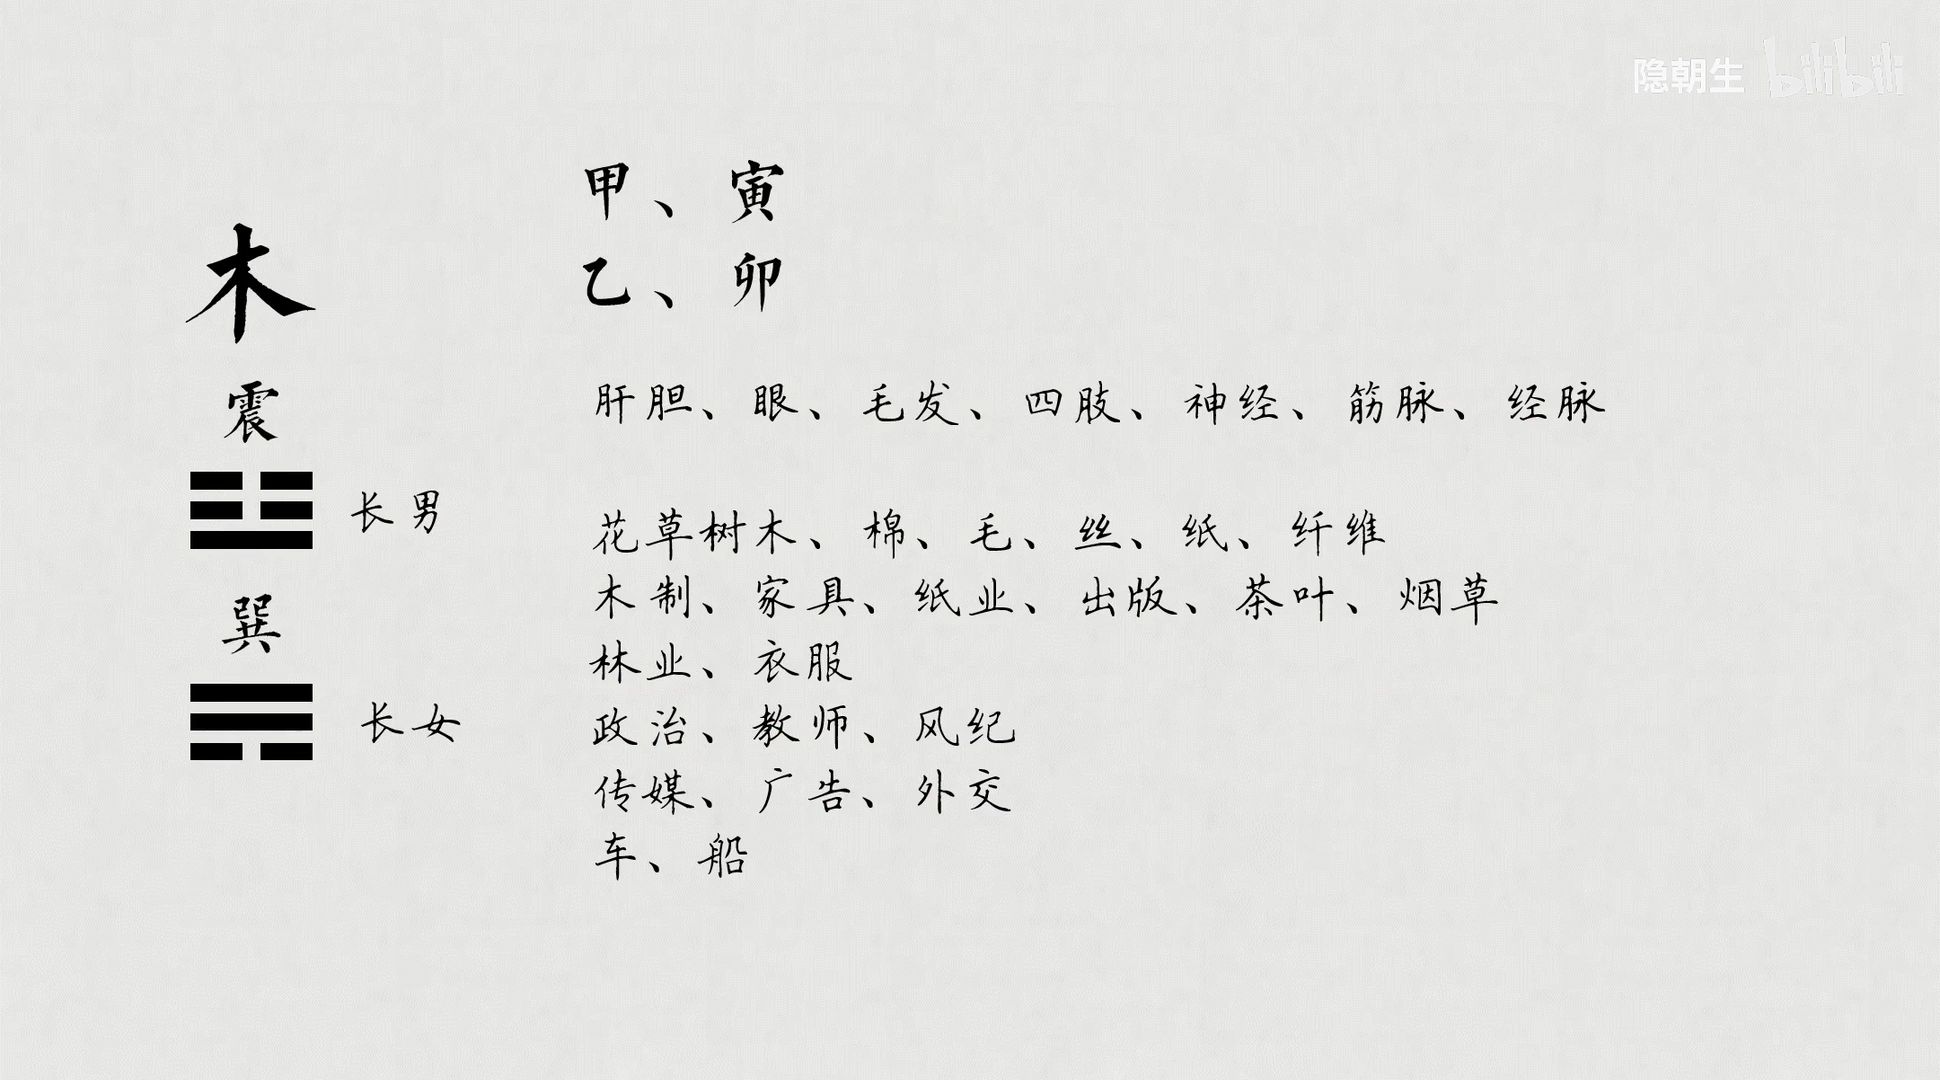 隐朝生 bilibili
木
震
长男
巽
长女
甲、寅
乙、卯
肝胆、眼、毛发、四肢、神经、筋脉、经脉
花草树木、棉、毛、丝、纸、纤维
木制、家具、纸业、出版、茶叶、烟草
林业、衣服
政治、教师、风纪
传媒、广告、外交
车、船